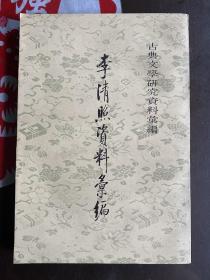 古典文學研究資料彙編
李清照資料彙編